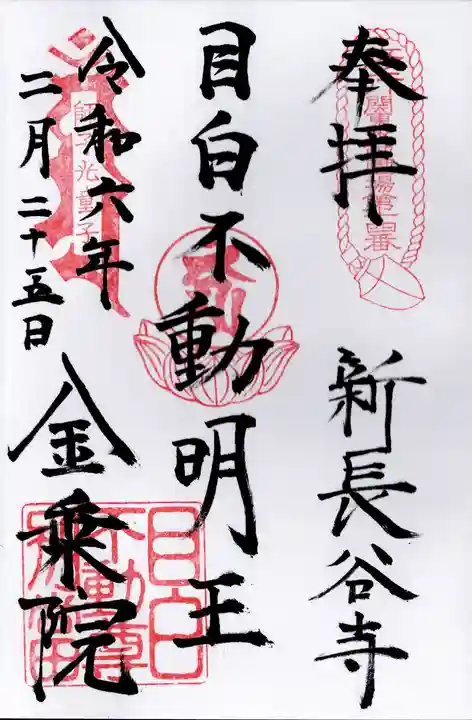 奉拝
新長谷寺
目白不動明王
令和六年
二月二十五日
金乗院
師子光童子
目白
不動尊